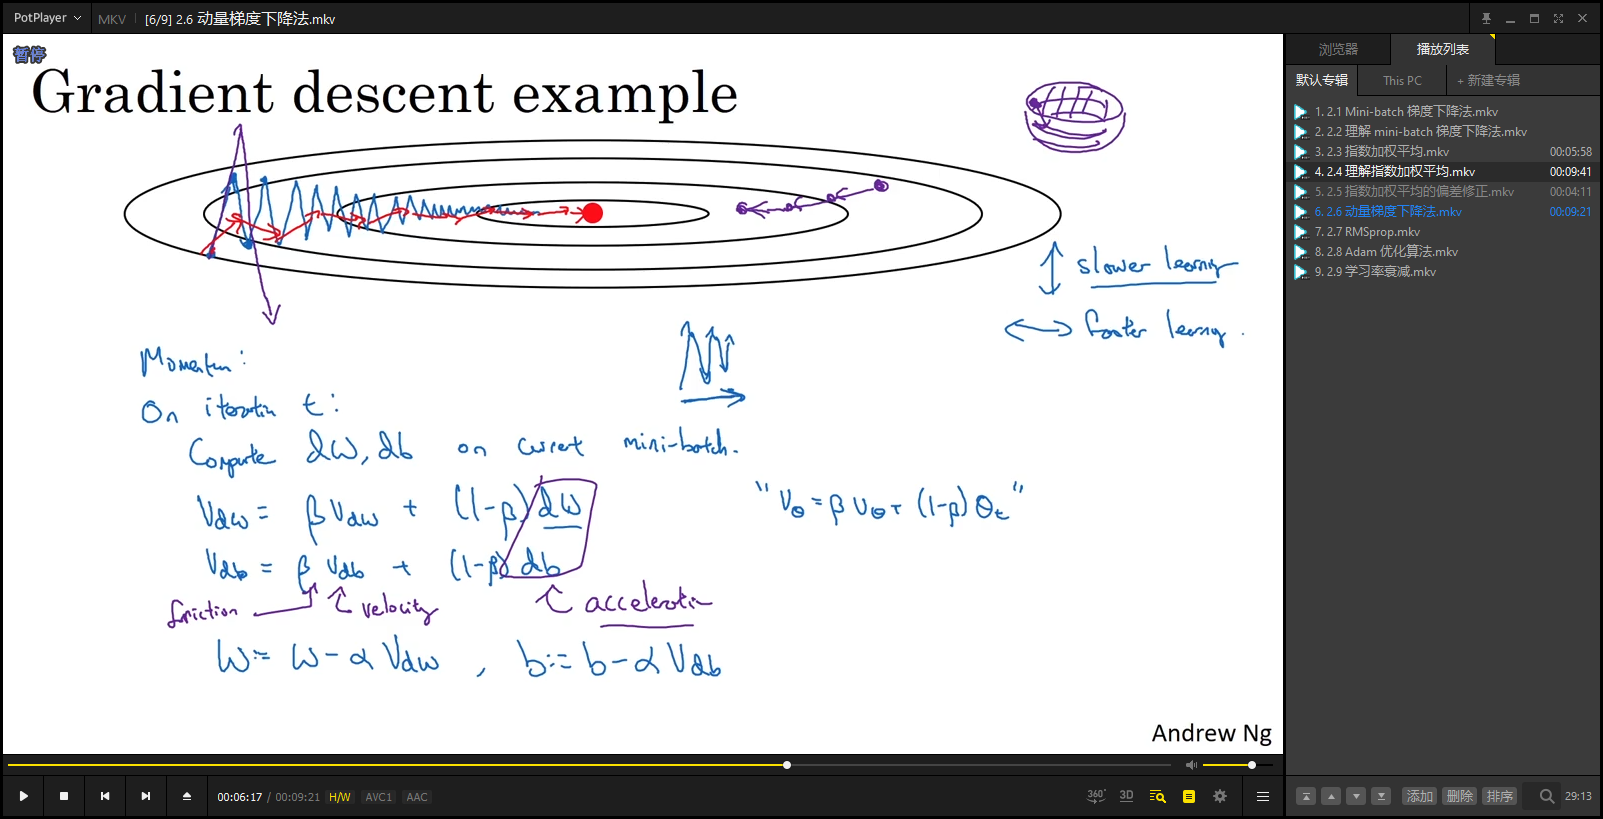 PotPlayer MKV [6/9] 2.6 动量梯度下降法.mkv
暂停
Gradient descent example
slower learning
faster learning.
Momentum:
On iteration t:
Compute dW, db on current mini-batch.
Vdw = βVdw + (1-β)dW
"Vθ = βVθ + (1-β)θt"
Vdb = βVdb + (1-β)db
friction velocity acceleration
W:= W-αVdw, b:= b-αVdb
Andrew Ng
00:06:17 / 00:09:21 H/W AVC1 AAC
360° 3D
浏览器 播放列表
默认专辑 This PC + 新建专辑
1. 2.1 Mini-batch 梯度下降法.mkv
2. 2.2 理解 mini-batch 梯度下降法.mkv
3. 2.3 指数加权平均.mkv 00:05:58
4. 2.4 理解指数加权平均.mkv 00:09:41
5. 2.5 指数加权平均的偏差修正.mkv 00:04:11
6. 2.6 动量梯度下降法.mkv 00:09:21
7. 2.7 RMSprop.mkv
8. 2.8 Adam 优化算法.mkv
9. 2.9 学习率衰减.mkv
添加 删除 排序 29:13